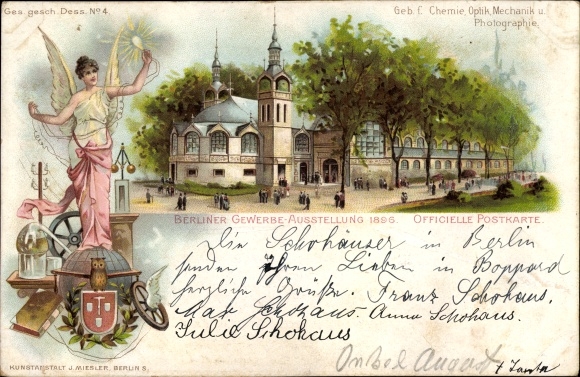 Ges. gesch. Dess. No 4.
Geb. f. Chemie, Optik, Mechanik u.
Photographie.
BERLINER GEWERBE-AUSSTELLUNG 1896. OFFICIELLE POSTKARTE.
Die Schohäuser in Berlin
senden Ihren Lieben in Boppard
herzliche Grüße. Franz Schohaus.
Max Schohaus. Anna Schohaus.
Julie Schohaus
Onkel August
7
KUNSTANSTALT J. MIESLER, BERLIN S.